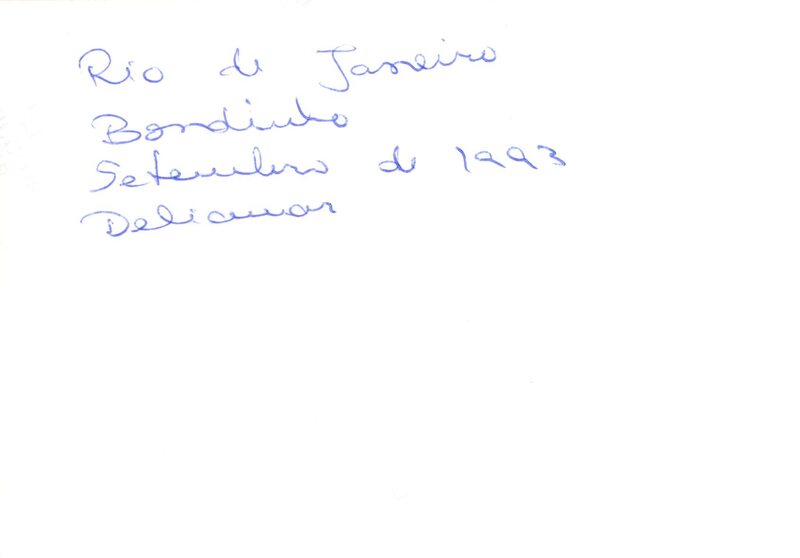 Rio de Janeiro
Bondinho
Setembro de 1993
Deliamar